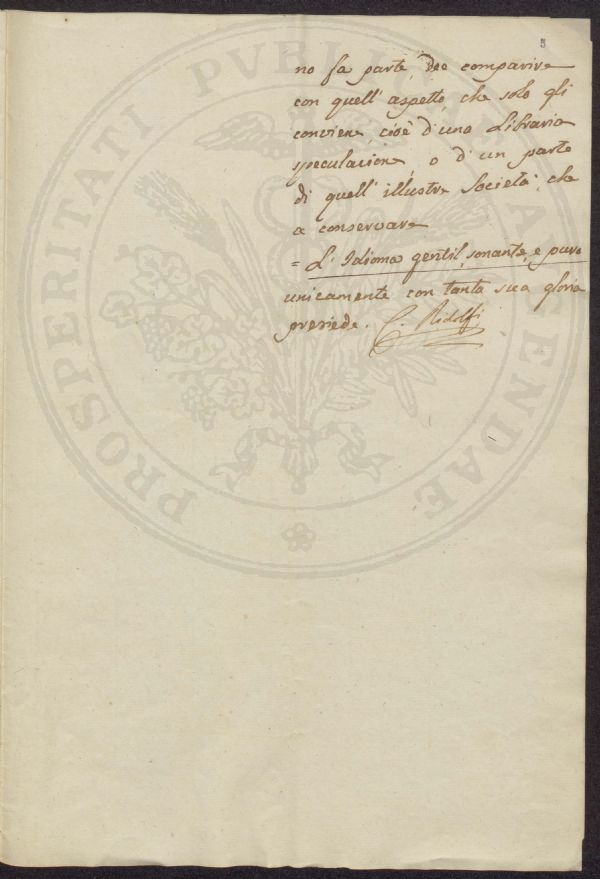 5
no fa parte, dee comparire
con quell' aspetto, che solo gli
conviene, cioè d'una Libraria
speculazione, o d'un parto
di quell' illustre Società, che
a conservare
= L'Idioma gentil, sonante, e puro
unicamente con tanta sua gloria
presiede. C. Ridolfi
PROSPERITATI PVBLICAE AVGENDAE